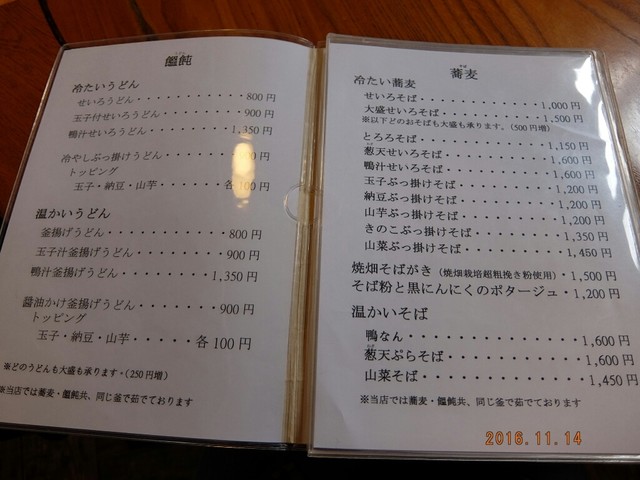 饂飩
冷たいうどん
せいろうどん・・・・・・・・・・・800円
玉子付せいろうどん・・・・・・・・900円
鴨汁せいろうどん・・・・・・・・・1,350円
冷やしぶっ掛けうどん・・・・・・・00円
トッピング
玉子・納豆・山芋・・・・・・・各100円
温かいうどん
釜揚げうどん・・・・・・・・・・・800円
玉子汁釜揚げうどん・・・・・・・・900円
鴨汁釜揚げうどん・・・・・・・・・1,350円
醤油かけ釜揚げうどん・・・・・・・900円
トッピング
玉子・納豆・山芋・・・・・・・各100円
※どのうどんも大盛も承ります。(250円増)
※当店では蕎麦・饂飩共、同じ釜で茹でております
そば
蕎麦
冷たい蕎麦
せいろそば・・・・・・・・・・・・1,000円
大盛せいろそば・・・・・・・・・・1,500円
※以下どのおそばも大盛も承ります。(500円増)
とろろそば・・・・・・・・・・・・1,150円
葱天せいろそば・・・・・・・・・・1,600円
鴨汁せいろそば・・・・・・・・・・1,600円
玉子ぶっ掛けそば・・・・・・・・・1,200円
納豆ぶっ掛けそば・・・・・・・・・1,200円
山芋ぶっ掛けそば・・・・・・・・・1,200円
きのこぶっ掛けそば・・・・・・・・1,350円
山菜ぶっ掛けそば・・・・・・・・・1,450円
焼畑そばがき(焼畑栽培超粗挽き粉使用)・1,500円
そば粉と黒にんにくのポタージュ・1,200円
温かいそば
鴨なん・・・・・・・・・・・・・・1,600円
葱天ぷらそば・・・・・・・・・・・1,600円
山菜そば・・・・・・・・・・・・・1,450円
※当店では蕎麦・饂飩共、同じ釜で茹でております
2016.11.14